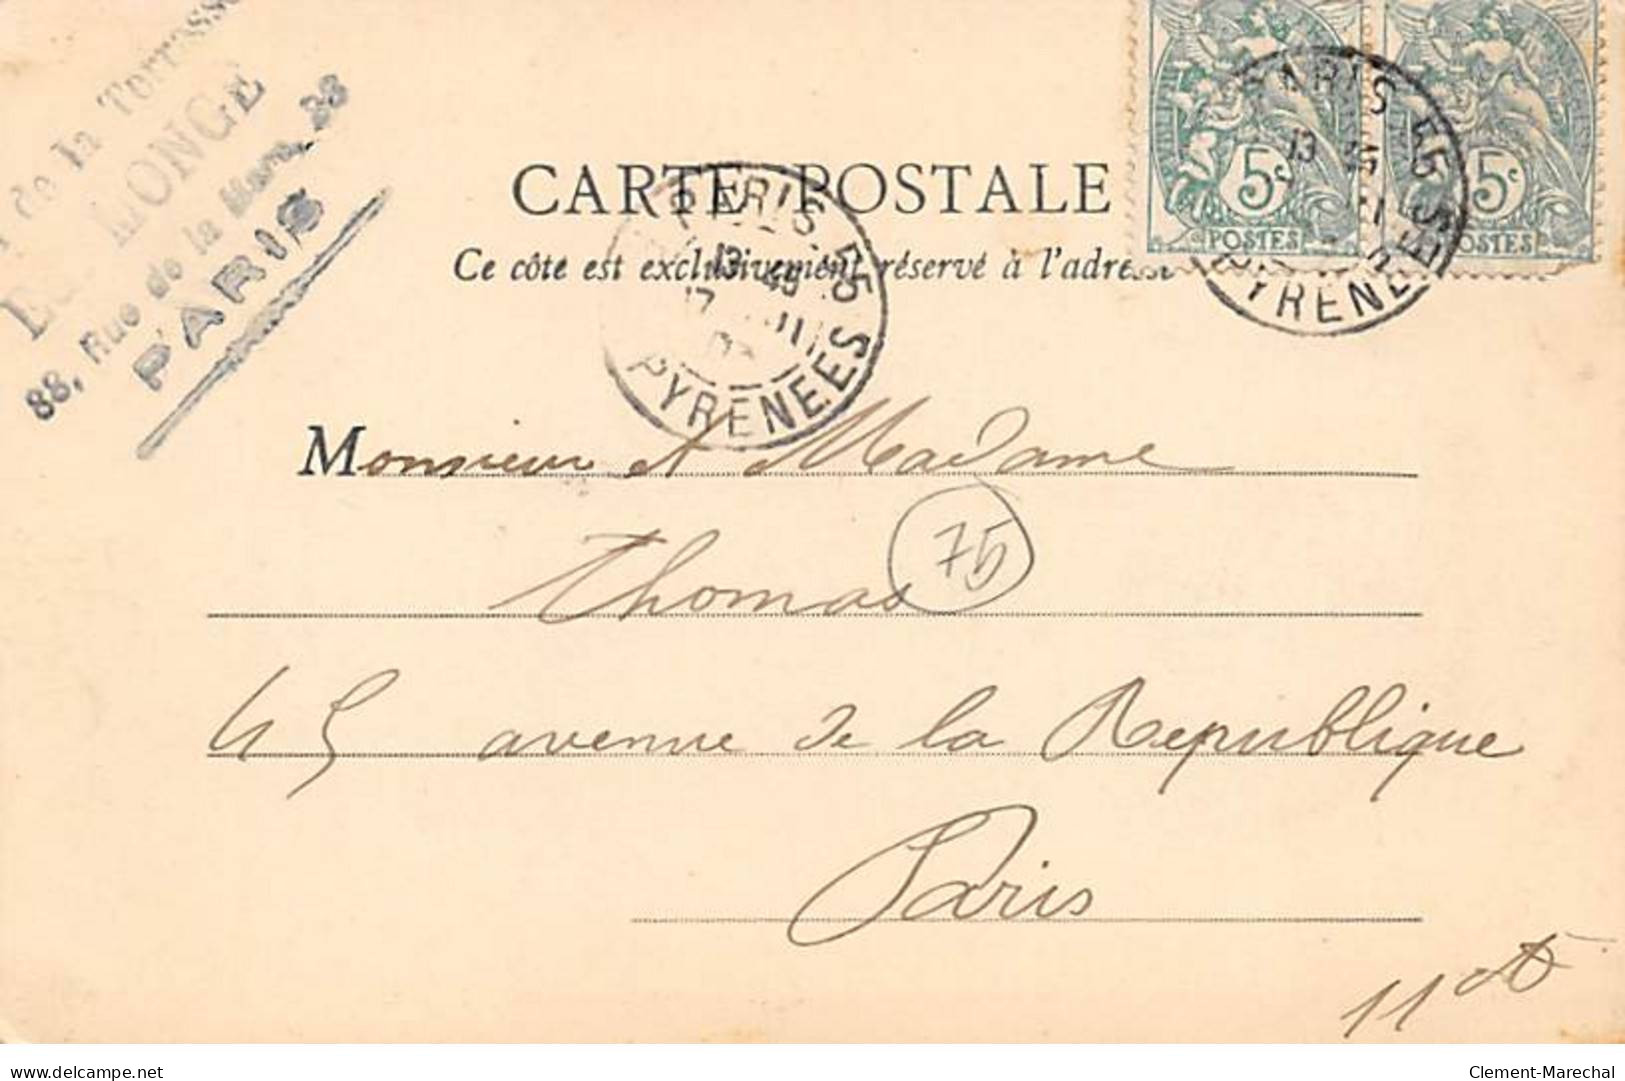 de la Terrasse
MONGE
88, Rue de la Mare, 88
PARIS
CARTE POSTALE
Ce côté est exclusivement réservé à l'adresse
5c
POSTES
5c
POSTES
PARIS. 55
13 45
PYRENEES
PARIS 55
13 45
PYRENEES
Monsieur et Madame
Thomas
75
45 avenue de la Republique
Paris
11
delcampe.net
Clement-Marechal